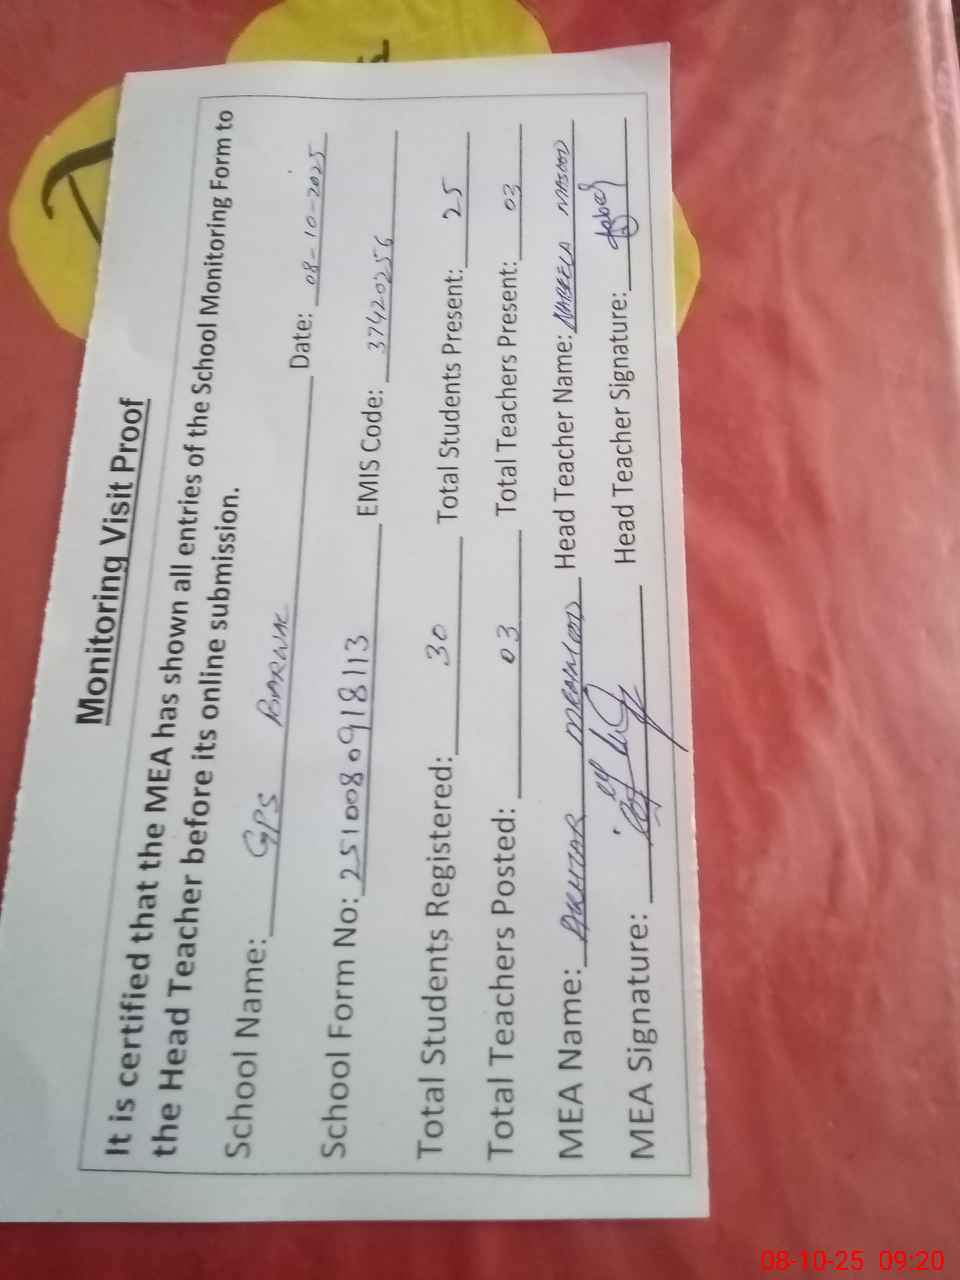 Monitoring Visit Proof
It is certified that the MEA has shown all entries of the School Monitoring Form to
the Head Teacher before its online submission.
School Name: GPS BARWAL Date: 08-10-2025
School Form No: 2510080918113 EMIS Code: 37420256
Total Students Registered: 30 Total Students Present: 25
Total Teachers Posted: 03 Total Teachers Present: 03
MEA Name: AKHTAR MEHMOOD Head Teacher Name: NABEELA MASOOD
MEA Signature: Head Teacher Signature:
08-10-25 09:20